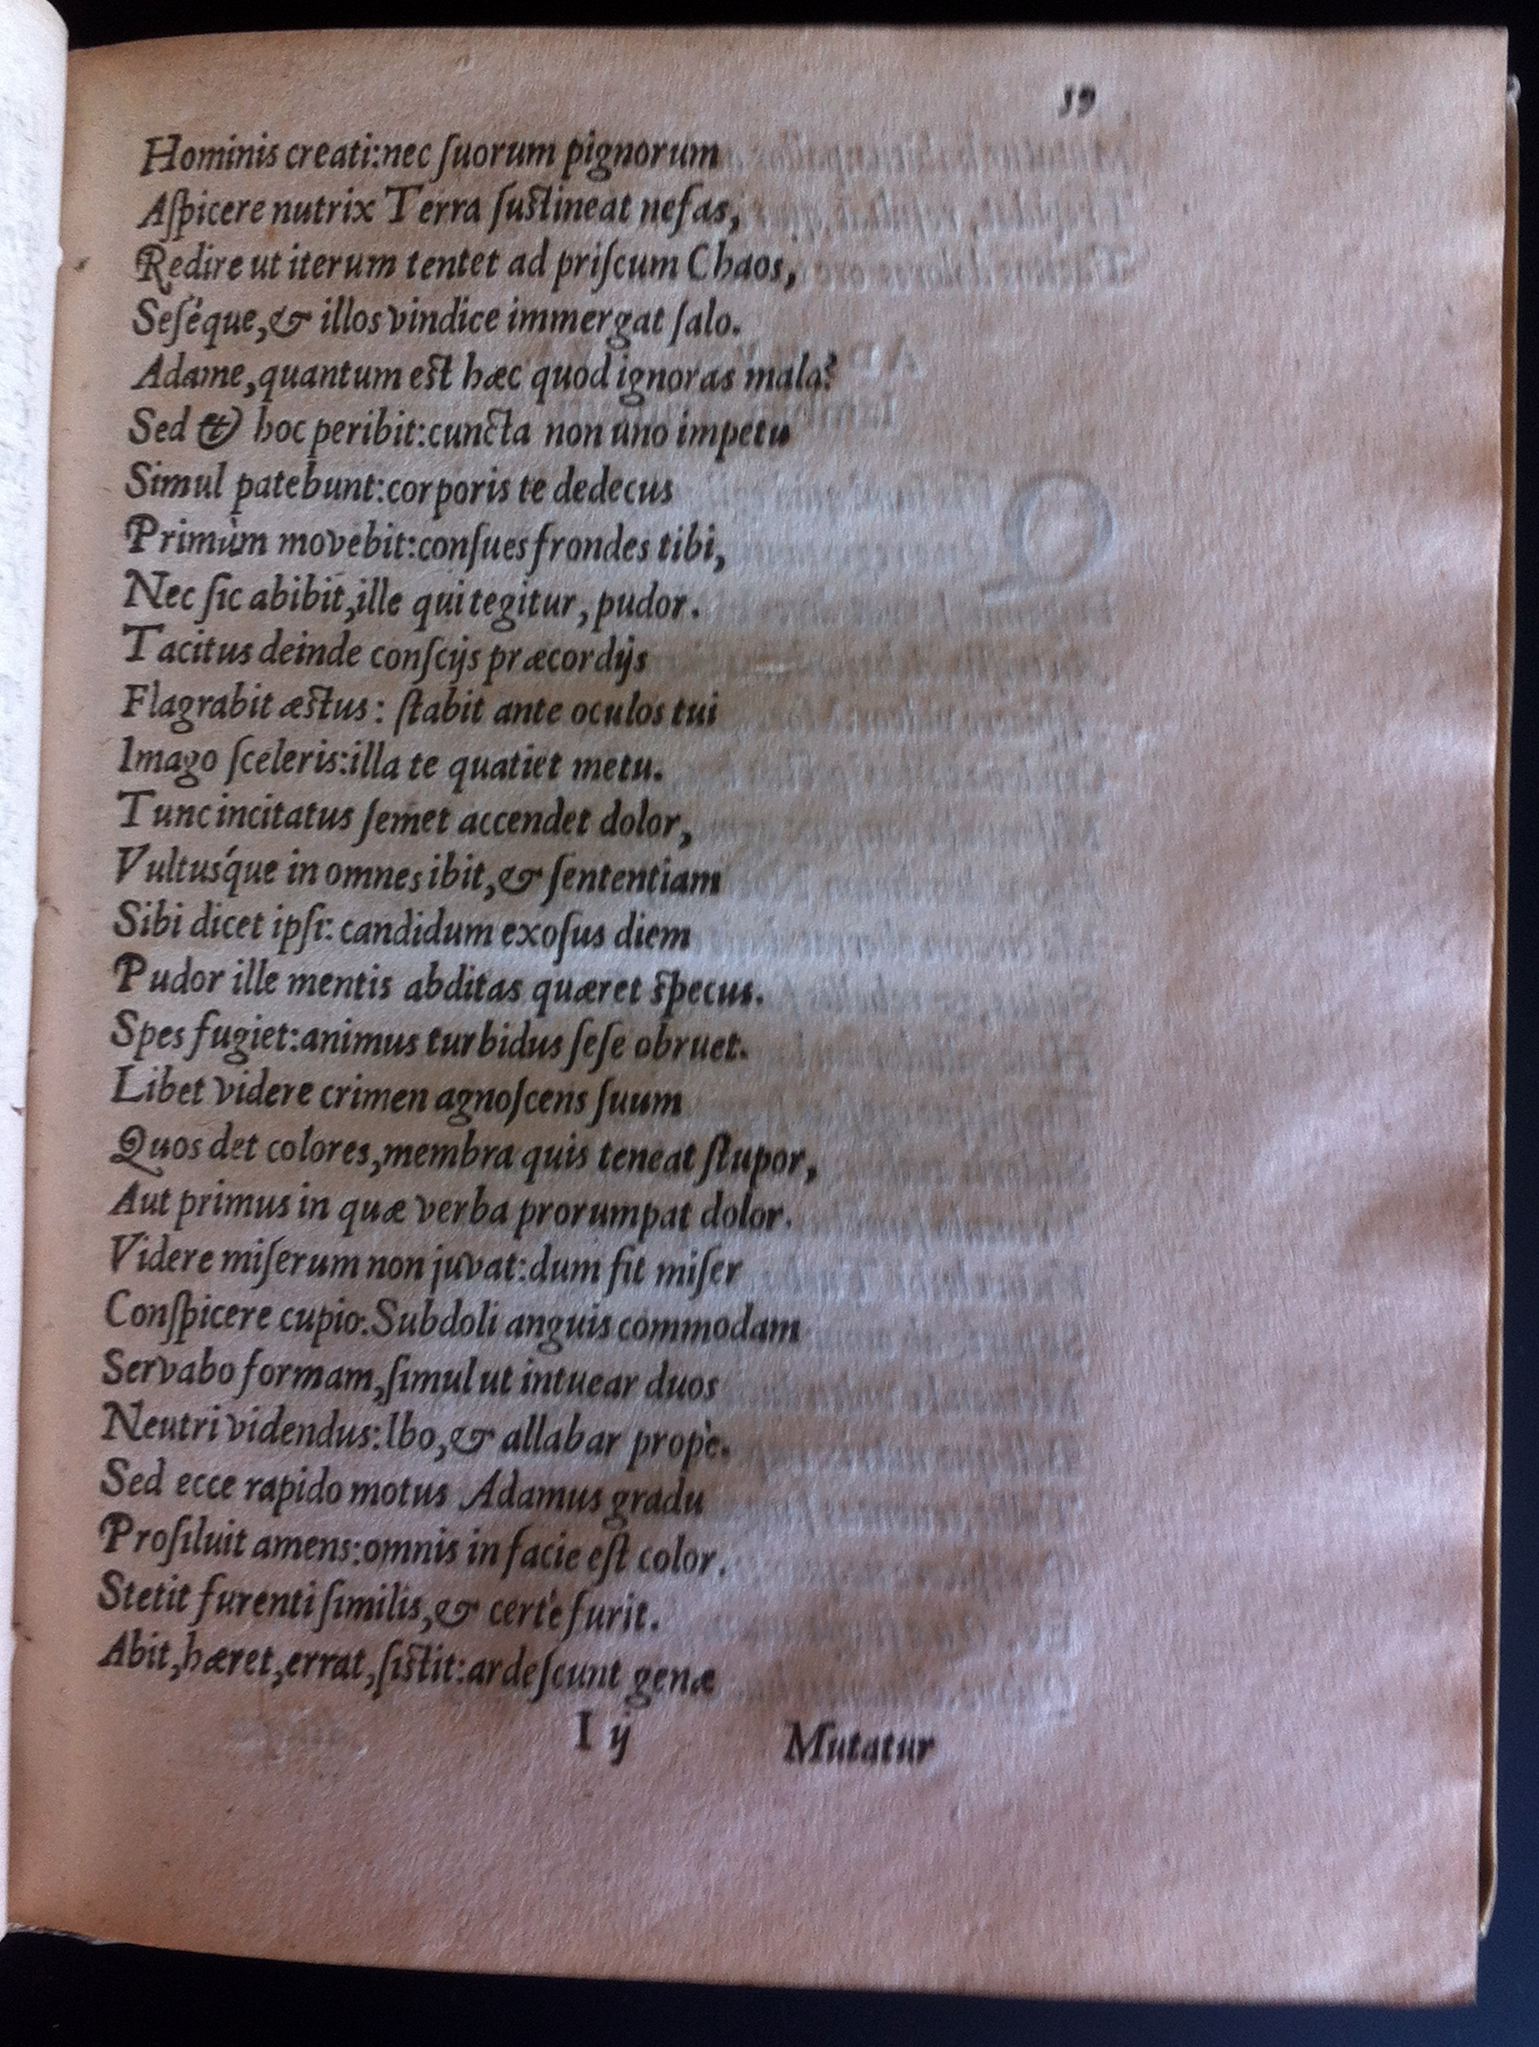 59
Hominis creati:nec ſuorum pignorum
Aſpicere nutrix Terra ſuſtineat nefas,
Redire ut iterum tentet ad priſcum Chaos,
Seſéque,& illos vindice immergat ſalo.
Adame,quantum eſt hæc quod ignoras mala?
Sed & hoc peribit:cuncta non uno impetu
Simul patebunt:corporis te dedecus
Primùm movebit:conſues frondes tibi,
Nec ſic abibit,ille qui tegitur, pudor.
Tacitus deinde conſcijs præcordijs
Flagrabit æſtus: ſtabit ante oculos tui
Imago ſceleris:illa te quatiet metu.
Tunc incitatus ſemet accendet dolor,
Vultusque in omnes ibit,& ſententiam
Sibi dicet ipſi: candidum exoſus diem
Pudor ille mentis abditas quæret ſpecus.
Spes fugiet:animus turbidus ſeſe obruet.
Libet videre crimen agnoſcens ſuum
Quos det colores,membra quis teneat ſtupor,
Aut primus in quæ verba prorumpat dolor.
Videre miſerum non juvat:dum fit miſer
Conſpicere cupio.Subdoli anguis commodam
Servabo formam,ſimul ut intuear duos
Neutri videndus:Ibo,& allabar propè.
Sed ecce rapido motus Adamus gradu
Proſiluit amens:omnis in facie eſt color.
Stetit furenti ſimilis,& certè furit.
Abit,hæret,errat,ſiſtit:ardeſcunt genæ
I ij Mutatur